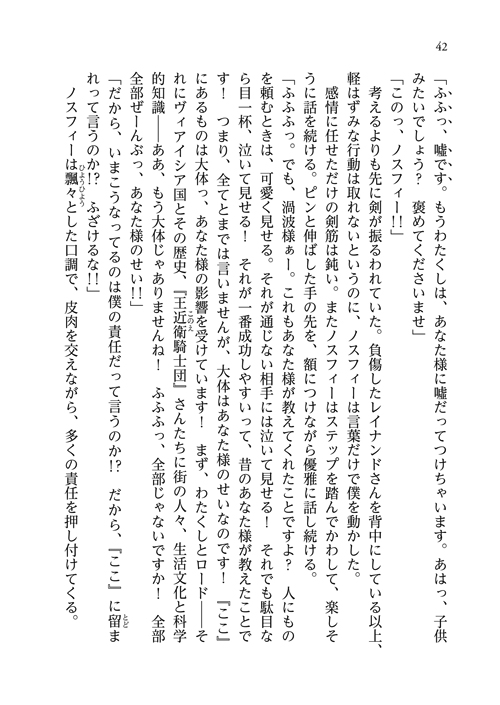 42
「ふふっ、嘘です。もうわたくしは、あなた様に嘘だってつけちゃいます。あはっ、子供
みたいでしょう？　褒めてくださいませ」
「このっ、ノスフィー!!」
　考えるよりも先に剣が振るわれていた。負傷したレイナンドさんを背中にしている以上、
軽はずみな行動は取れないというのに、ノスフィーは言葉だけで僕を動かした。
　感情に任せただけの剣筋は鈍い。またノスフィーはステップを踏んでかわして、楽しそ
うに話を続ける。ピンと伸ばした手の先を、額につけながら優雅に話し続ける。
「ふふふっ。でも、渦波様ぁー。これもあなた様が教えてくれたことですよ？　人にもの
を頼むときは、可愛く見せる。それが通じない相手には泣いて見せる！　それでも駄目な
ら目一杯、泣いて見せる！　それが一番成功しやすいって、昔のあなた様が教えたことで
す！　つまり、全てとまでは言いませんが、大体はあなた様のせいなのです！　『ここ』
にあるものは大体っ、あなた様の影響を受けています！　まず、わたくしとロード――そ
れにヴィアイシア国とその歴史、『王近衛騎士団』さんたちに街の人々、生活文化と科学
的知識――ああ、もう大体じゃありませんね！　ふふふっ、全部じゃないですか！　全部
全部ぜーんぶっ、あなた様のせい!!」
「だから、いまこうなってるのは僕の責任だって言うのか!?　だから、『ここ』に留ま
れって言うのか!?　ふざけるな!!」
　ノスフィーは飄々とした口調で、皮肉を交えながら、多くの責任を押し付けてくる。